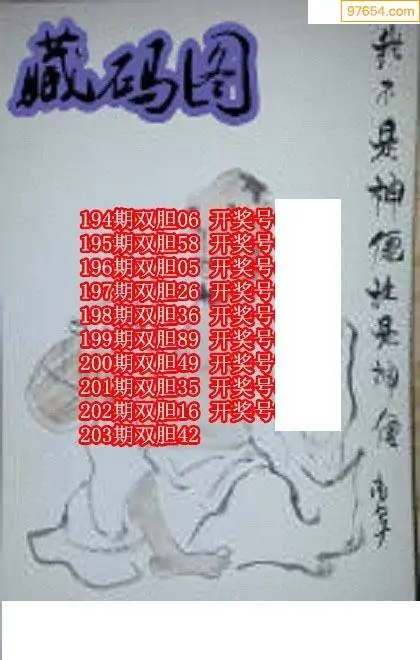 97654.com
藏码图
我不是神便让是神便
194期双胆06 开奖号
195期双胆58 开奖号
196期双胆05 开奖号
197期双胆26 开奖号
198期双胆36 开奖号
199期双胆89 开奖号
200期双胆49 开奖号
201期双胆35 开奖号
202期双胆16 开奖号
203期双胆42